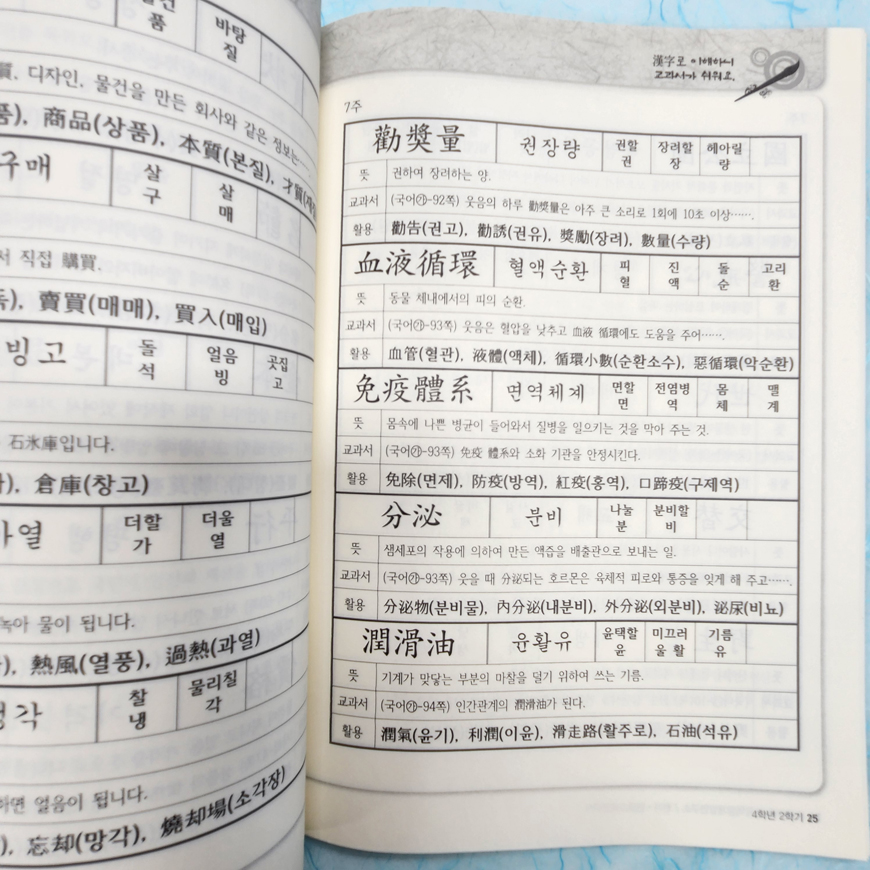 품
바탕
질
質. 디자인, 물건을 만든 회사와 같은 정보는……
商品(상품), 本質(본질), 才質
구매
살
구
살
매
서 직접 購買.
賣買(매매), 買入(매입)
빙고
돌
석
얼음
빙
곳집
고
石氷庫입니다.
倉庫(창고)
가열
더할
가
더울
열
녹아 물이 됩니다.
熱風(열풍), 過熱(과열)
각
찰
냉
물리칠
각
하면 얼음이 됩니다.
忘却(망각), 燒却場(소각장)
漢字로 이해하니
교과서가 쉬워요.
7주
勸奬量 권장량 권할 권 장려할 장 헤아릴 량
뜻 권하여 장려하는 양.
교과서 (국어㉮-92쪽) 웃음의 하루 勸奬量은 아주 큰 소리로 1회에 10초 이상…….
활용 勸告(권고), 勸誘(권유), 奬勵(장려), 數量(수량)
血液循環 혈액순환 피 혈 진 액 돌 순 고리 환
뜻 동물 체내에서의 피의 순환.
교과서 (국어㉮-93쪽) 웃음은 혈압을 낮추고 血液 循環에도 도움을 주어…….
활용 血管(혈관), 液體(액체), 循環小數(순환소수), 惡循環(악순환)
免疫體系 면역체계 면할 면 전염병 역 몸 체 맬 계
뜻 몸속에 나쁜 병균이 들어와서 질병을 일으키는 것을 막아 주는 것.
교과서 (국어㉮-93쪽) 免疫 體系와 소화 기관을 안정시킨다.
활용 免除(면제), 防疫(방역), 紅疫(홍역), 口蹄疫(구제역)
分泌 분비 나눌 분 분비할 비
뜻 샘세포의 작용에 의하여 만든 액즙을 배출관으로 보내는 일.
교과서 (국어㉮-93쪽) 웃을 때 分泌되는 호르몬은 육체적 피로와 통증을 잊게 해 주고…….
활용 分泌物(분비물), 內分泌(내분비), 外分泌(외분비), 泌尿(비뇨)
潤滑油 윤활유 윤택할 윤 미끄러울 활 기름 유
뜻 기계가 맞닿는 부분의 마찰을 덜기 위하여 쓰는 기름.
교과서 (국어㉮-94쪽) 인간관계의 潤滑油가 된다.
활용 潤氣(윤기), 利潤(이윤), 滑走路(활주로), 石油(석유)
4학년 2학기 25